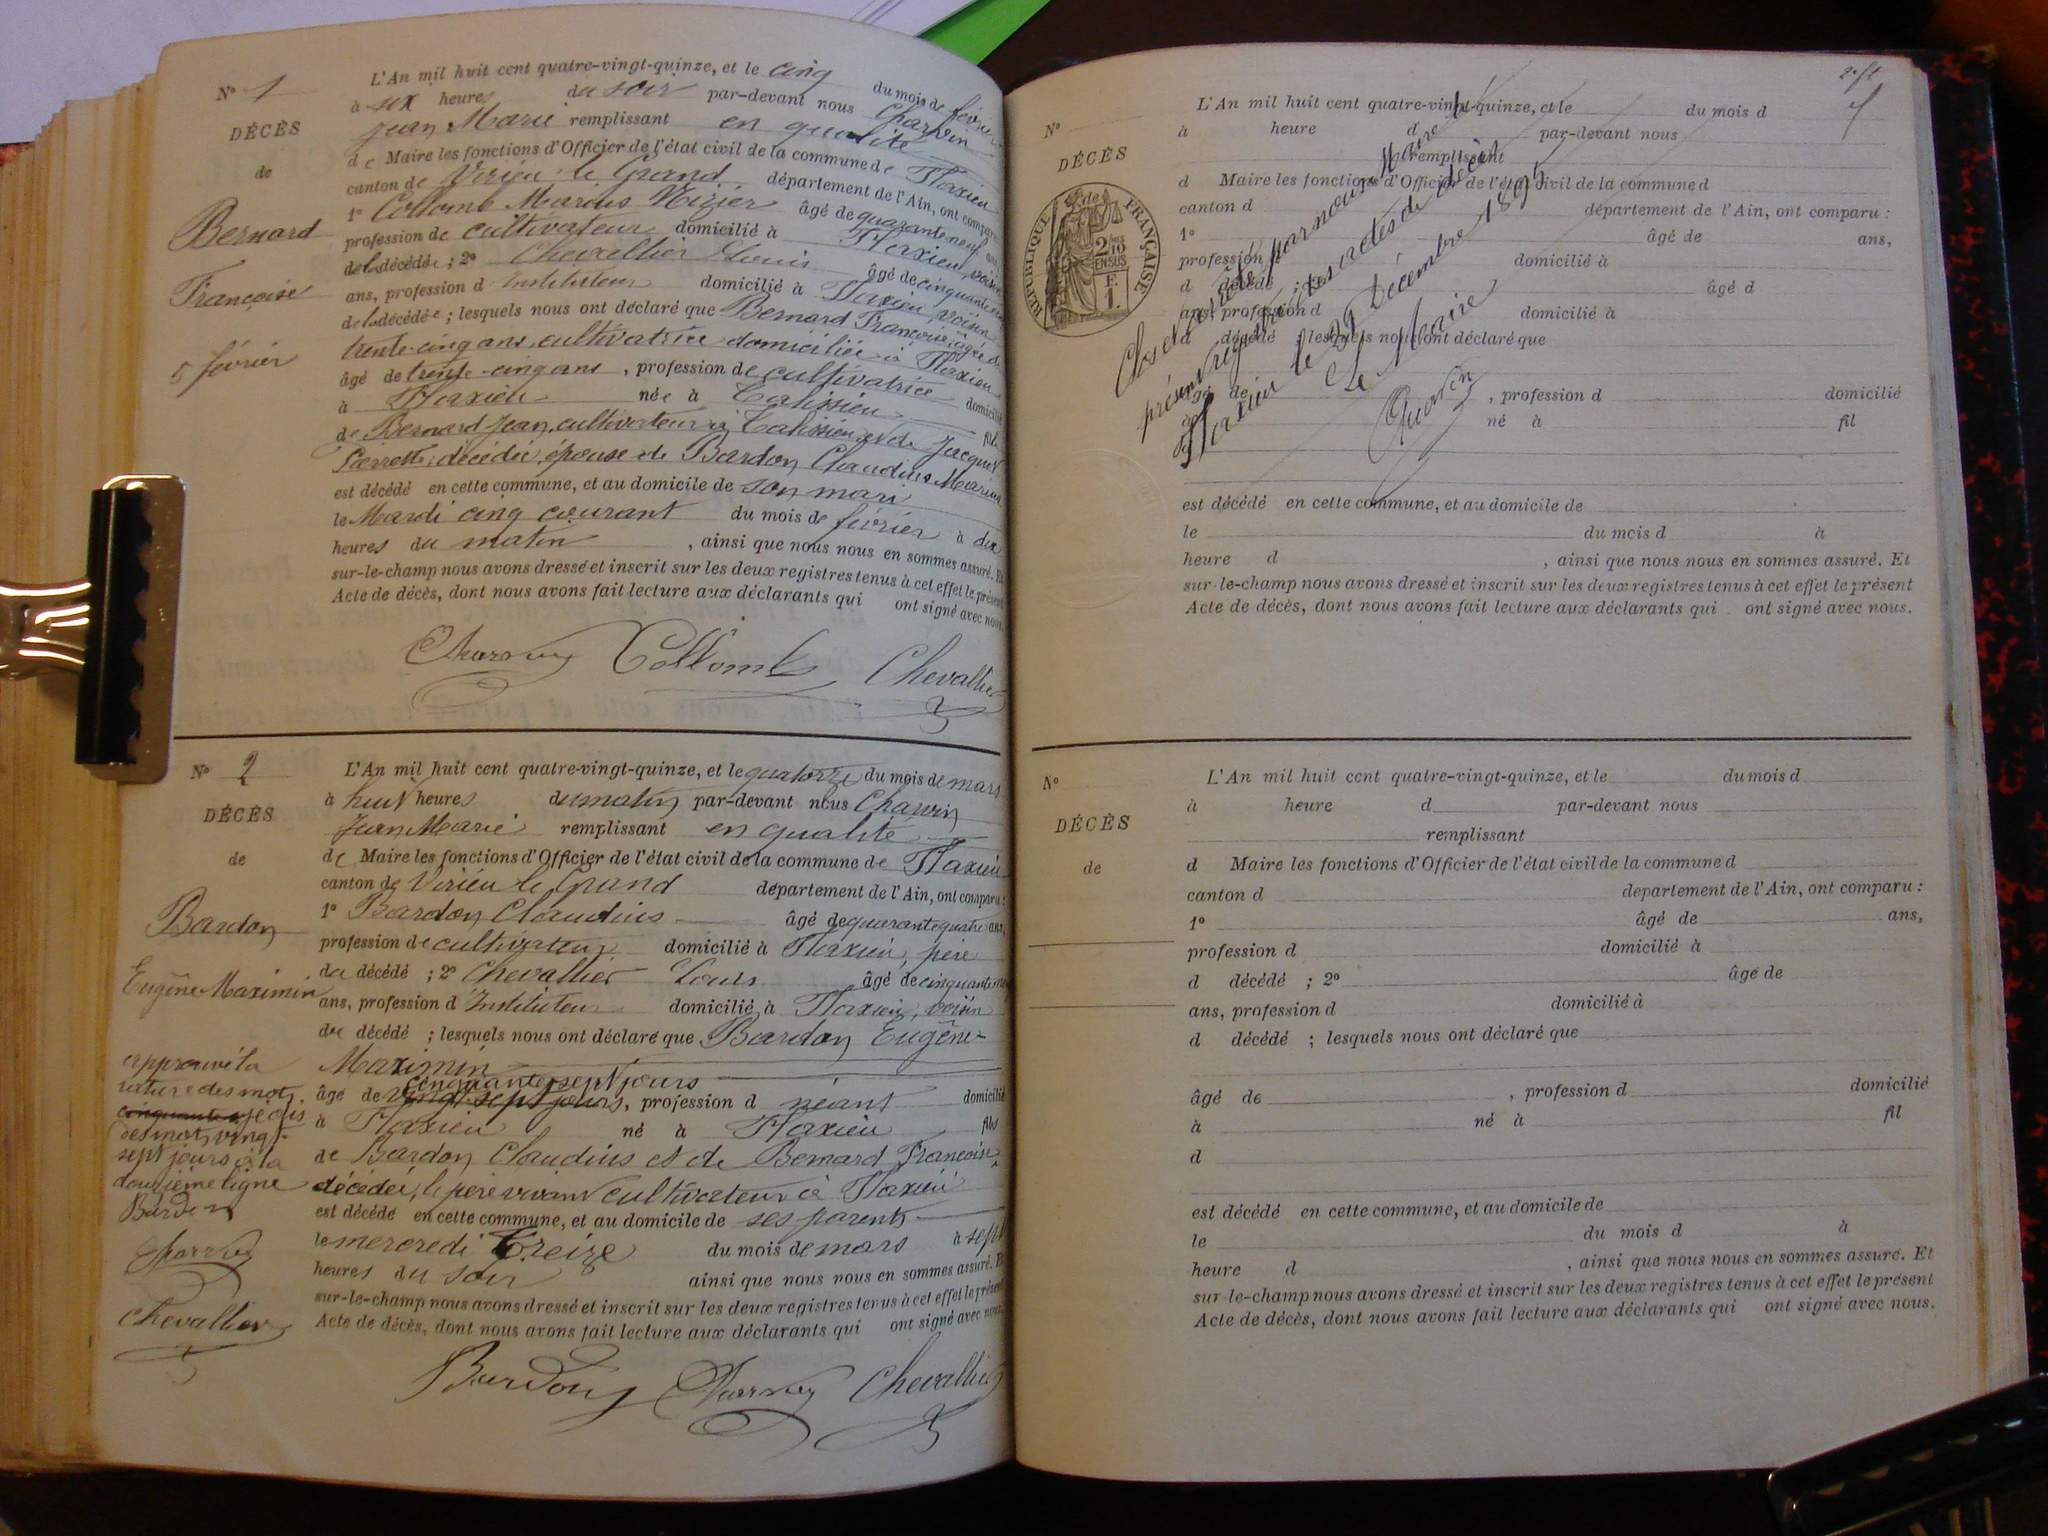 N° 1
DÉCÈS
de
Bernard
Françoise
5 février
L'An mil huit cent quatre-vingt-quinze, et le cinq du mois de février
à six heures du soir par-devant nous Charvin
Jean Marie remplissant en qualité
de Maire les fonctions d'Officier de l'état civil de la commune de Flaxieu
canton de Virieu le Grand département de l'Ain, ont comparu
1° Collomb Marius Nizier âgé de quarante neuf ans
profession de cultivateur domicilié à Flaxieu, voisin
de la décédée ; 2° Chevallier Louis âgé de cinquante
ans, profession d'Instituteur domicilié à Flaxieu voisin
de la décédée ; lesquels nous ont déclaré que Bernard Françoise, âgée de
trente-cinq ans, cultivatrice domiciliée à Flaxieu
âgé de trente-cinq ans, profession de cultivatrice domicilié
à Flaxieu née à Talissieu fille
de Bernard Jean, cultivateur à Talissieu et de Jacquet
Pierrette, décédée, épouse de Bardon Claudius Marius
est décédé en cette commune, et au domicile de son mari
le Mardi cinq courant du mois de février à dix
heures du matin, ainsi que nous nous en sommes assuré. Et
sur-le-champ nous avons dressé et inscrit sur les deux registres tenus à cet effet le présent
Acte de décès, dont nous avons fait lecture aux déclarants qui ont signé avec nous.
Charvin Collomb Chevallier
N° 2
DÉCÈS
de
Bardon
Eugène Maximin
approuvé la
rature des mots
cinquante sept jours
des mots vingt-
sept jours à la
douzième ligne
Bardon
Charvin
Chevallier
L'An mil huit cent quatre-vingt-quinze, et le quatorze du mois de mars
à huit heures du matin par-devant nous Charvin
Jean Marie remplissant en qualité
de Maire les fonctions d'Officier de l'état civil de la commune de Flaxieu
canton de Virieu le Grand département de l'Ain, ont comparu :
1° Bardon Claudius âgé de quarante quatre ans,
profession de cultivateur domicilié à Flaxieu, père
du décédé ; 2° Chevallier Louis âgé de cinquante
ans, profession d'Instituteur domicilié à Flaxieu, voisin
du décédé ; lesquels nous ont déclaré que Bardon Eugène-
Maximin
cinquante sept jours
âgé de vingt-sept jours, profession d néant domicilié
à Flaxieu né à Flaxieu fils
de Bardon Claudius et de Bernard Françoise,
décédée, le père vivant cultivateur à Flaxieu
est décédé en cette commune, et au domicile de ses parents
le mercredi treize du mois de mars à sept
heures du soir ainsi que nous nous en sommes assuré. Et
sur-le-champ nous avons dressé et inscrit sur les deux registres tenus à cet effet le présent
Acte de décès, dont nous avons fait lecture aux déclarants qui ont signé avec nous.
Bardon Charvin Chevallier
N°
DÉCÈS
de
RÉPUBLIQUE FRANÇAISE
2/10
EN SUS
F.
1.
L'An mil huit cent quatre-vingt-quinze, et le du mois d
à heure d par-devant nous
remplissant
d Maire les fonctions d'Officier de l'état civil de la commune d
canton d département de l'Ain, ont comparu :
1° âgé de ans,
profession d domicilié à
d décédé ; 2° âgé d
ans, profession d domicilié à
d décédé ; lesquels nous ont déclaré que
âgé de , profession d domicilié
à né à fil
d
est décédé en cette commune, et au domicile de
le du mois d à
heure d , ainsi que nous nous en sommes assuré. Et
sur-le-champ nous avons dressé et inscrit sur les deux registres tenus à cet effet le présent
Acte de décès, dont nous avons fait lecture aux déclarants qui ont signé avec nous.
Clos et arrêté par nous Maire le
présent registre des actes de décès
Flaxieu le 29 Décembre 1895
Le Maire
Charvin
N°
DÉCÈS
de
L'An mil huit cent quatre-vingt-quinze, et le du mois d
à heure d par-devant nous
remplissant
d Maire les fonctions d'Officier de l'état civil de la commune d
canton d departement de l'Ain, ont comparu :
1° âgé de ans,
profession d domicilié à
d décédé ; 2° âgé de
ans, profession d domicilié à
d décédé ; lesquels nous ont déclaré que
âgé de , profession d domicilié
à né à fil
d
est décédé en cette commune, et au domicile de
le du mois d à
heure d , ainsi que nous nous en sommes assuré. Et
sur-le-champ nous avons dressé et inscrit sur les deux registres tenus à cet effet le présent
Acte de décès, dont nous avons fait lecture aux déclarants qui ont signé avec nous.